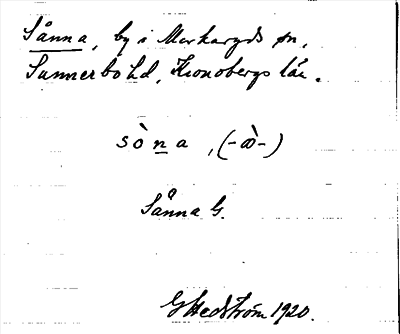 Sånna, by i Markaryds sn,
Sunnerbo hd, Kronobergs län.
sò n a , (-ꝏ̀-)
Sånna G.
G Hedström 1920.